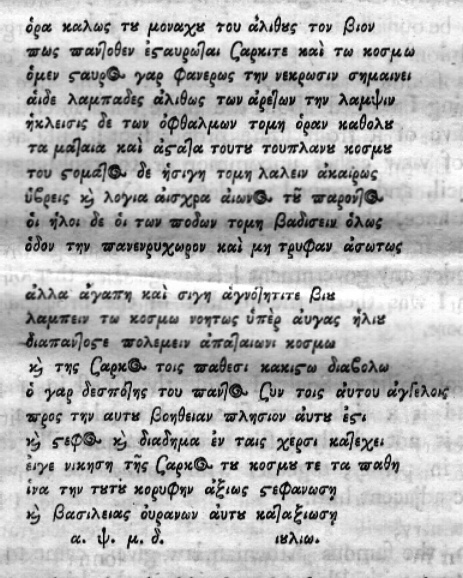 ὁρα καλως τȣ μοναχȣ του ἀλιθȣς τον βιον
πως παντοθεν ἐςαυρωται ζαρκιτε καὶ τω κοσμω
ὁμεν ςαυρος γαρ φανερως την νεκρωσιν σημαινει
ἁιδε λαμπαδες ἀλιθως των ἀρετων την λαμψιν
ἡκλεισις δε των ὀφθαλμων τομη ὁραν καθολȣ
τα ματαια καὶ ἀςατα τουτȣ τουπλανȣ κοσμȣ
του ςοματος δε ἡσιγη τομη λαλειν ἀκαίρως
ὑβρεις κὶ λογια ἀισχρα ἀιωνος τȣ͂ παροντος
ὁι ἡλοι δε ὁι των ποδων τομη βαδισειν ὁλως
ὁδον την πανενρυχωρον καὶ μη τρυφαν ἀσωτως
ἀλλα ἀγαπη καὶ σιγη ἁγνοτητιτε βιȣ
λαμπειν τω κοσμω νοητως ὑπὲρ ἀυγας ἡλιȣ
διαπαντοςε πολεμειν ἀπαταιωνι κοσμω
κὶ της ζαρκος τοις παθεσι κακιςω διαβολω
ὁ γαρ δεσποτης του παντος ζυν τοις ἀυτου ἀγγελοις
προς την αυτȣ βοηθειαν πλησιον ἀυτȣ ἐςι
κὶ ςεφος κὶ διαδημα ἐν ταις χερσι κατεχει
ἐιγε νικηση τῆς ζαρκος τȣ κοσμȣ τε τα παθη
ἱνα την τȣτȣ κορυφην ἀξιως ςεφανωση
κὶ βασιλειας ȣρανων ἀυτȣ καταξιωση
α. ψ. μ. δ. ιȣλιω.